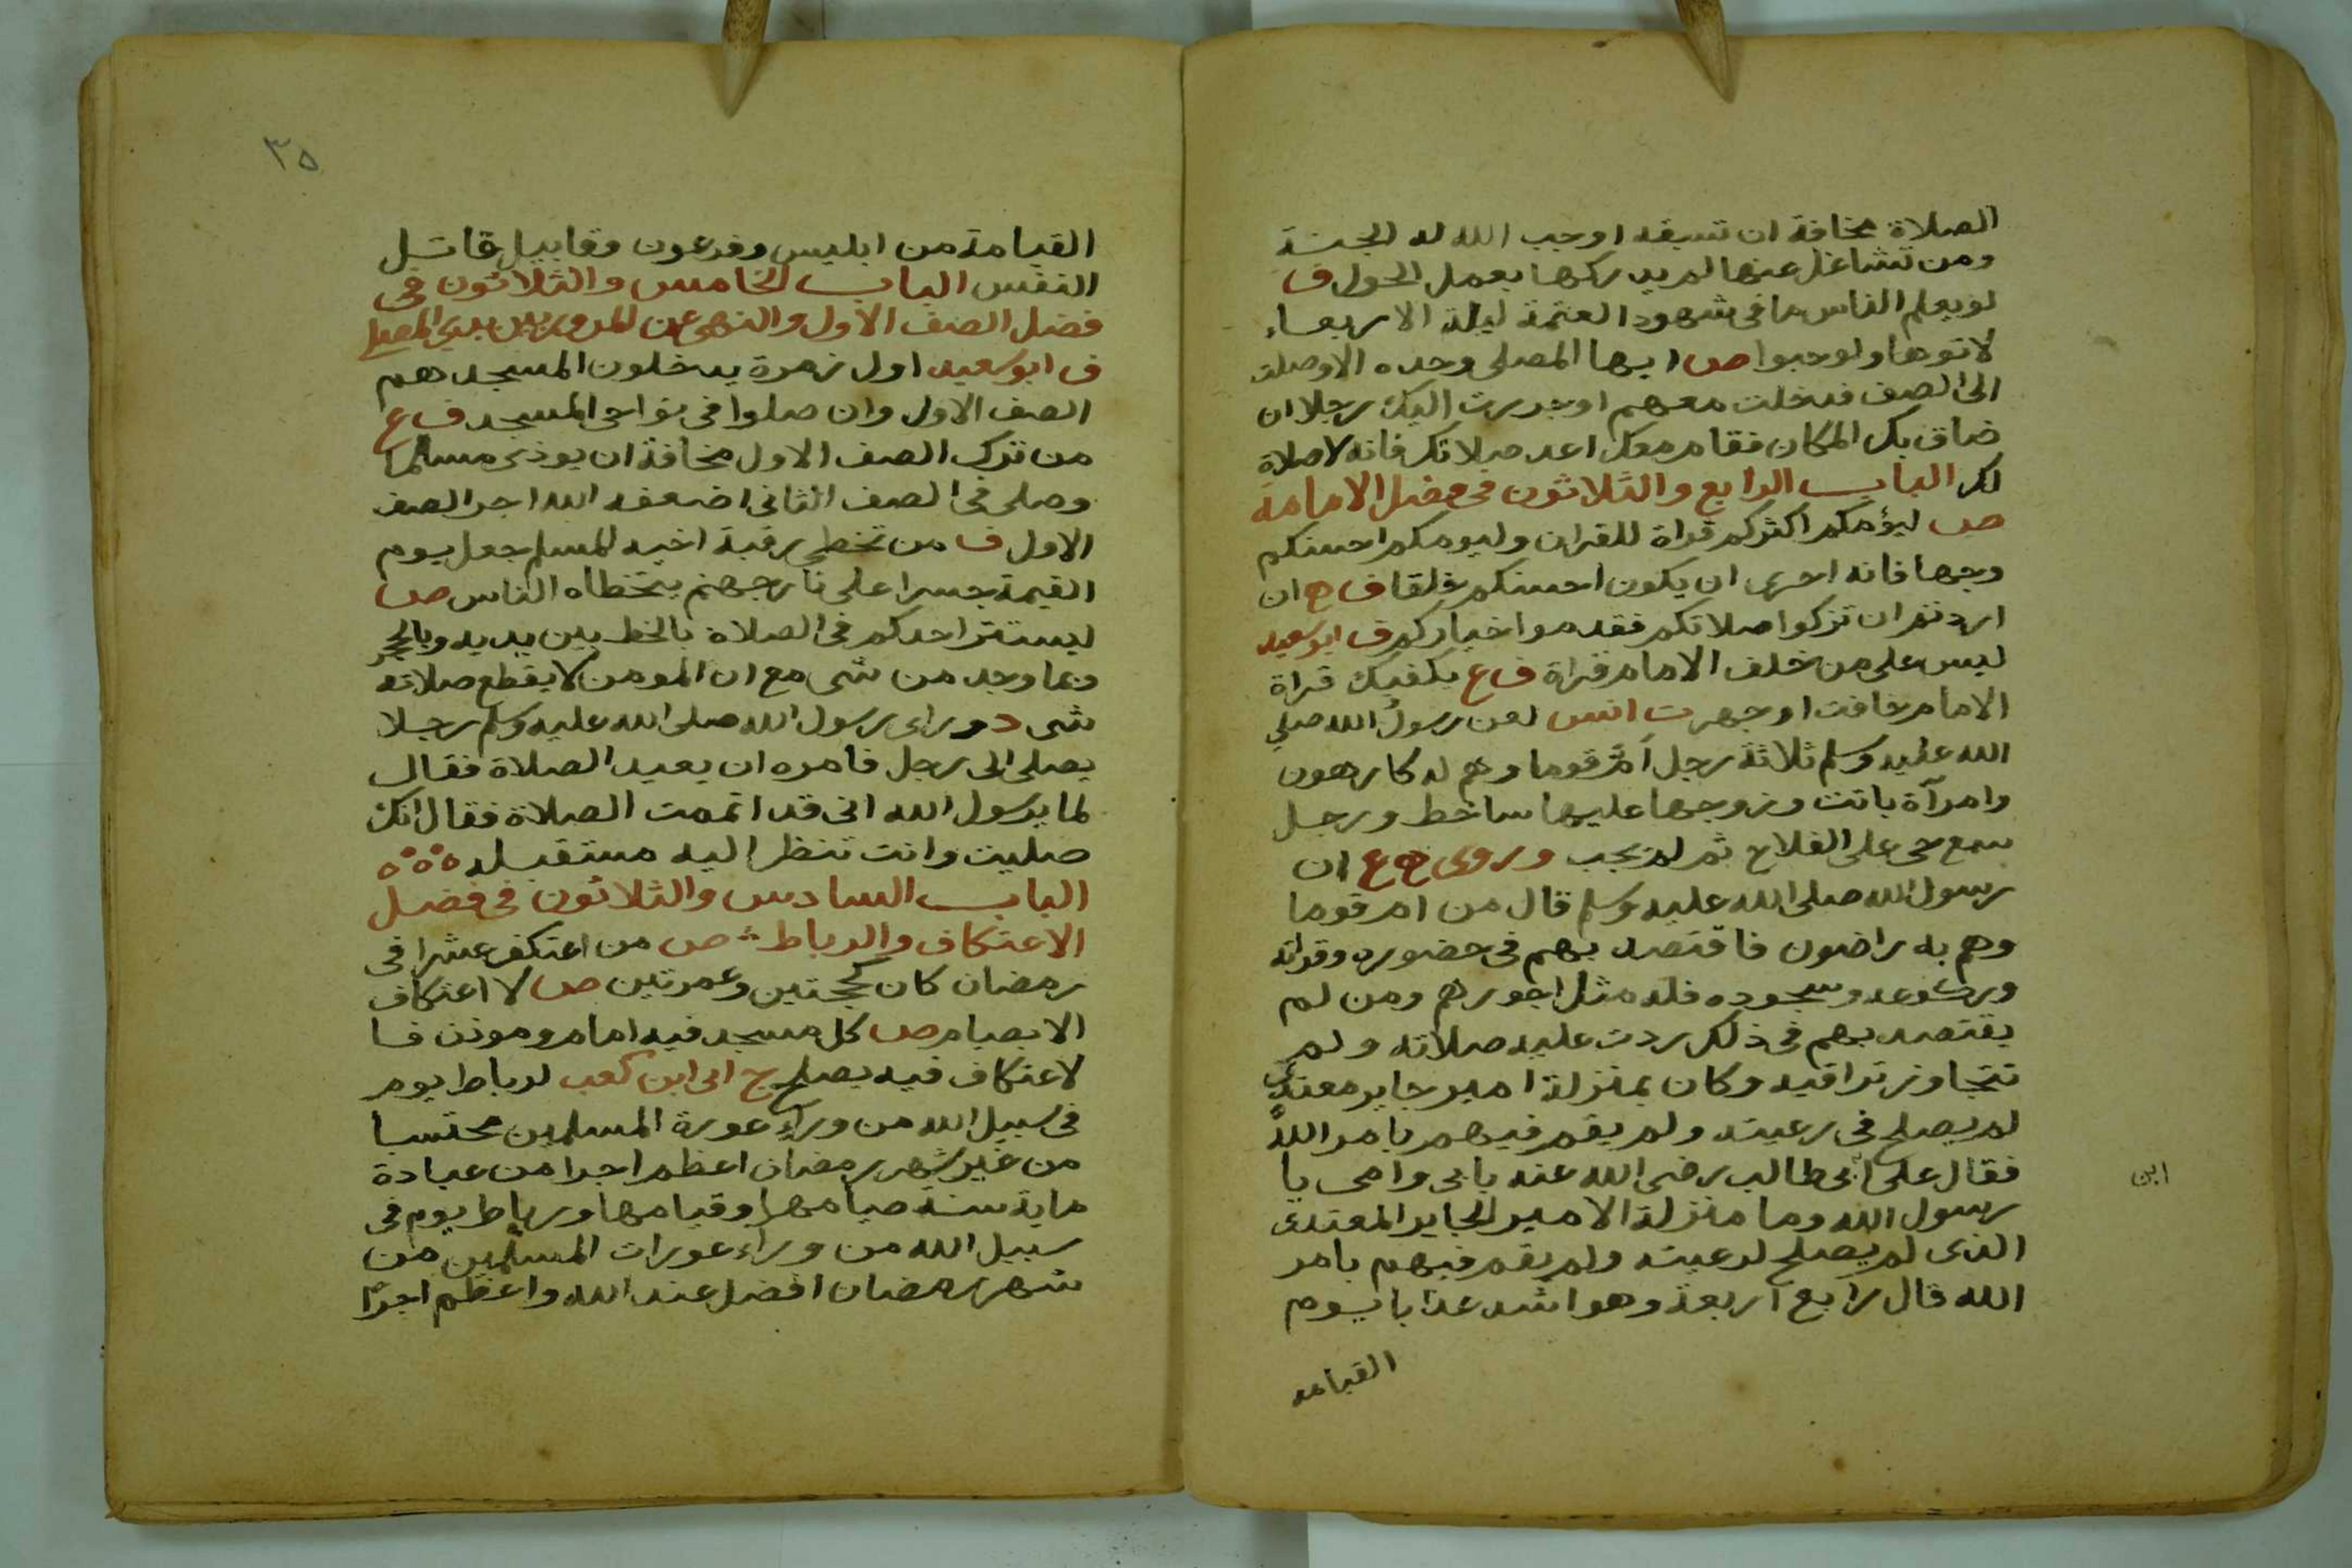 الصلاة مخافة ان تسبقه اوجب الله له الجنة
ومن تشاغل عنها لم يدركها بعمل الحول ف
لو يعلم الناس ما في شهود العتمة ليلة الاربعاء
لاتوها ولو حبوا ص ايها المصلى وحده الا وصلت
الى الصف فدخلت معهم او جررت اليك رجلا ان
ضاق بك المكان فقام معك اعد صلاتك فانه لا صلاة
لك الباب الرابع والثلاثون في فضل الامامة
ص ليؤمكم اكثركم قراة للقران وليومكم احسنكم
وجها فانه احرى ان يكون احسنكم خلقا ف ان
اردتم ان تزكوا صلاتكم فقدموا خياركم ف ابو سعيد
ليس على من خلف الامام قراة ف ع يكفيك قراة
الامام خافت او جهر ت انس لعن رسول الله صلي
الله عليه وسلم ثلاثة رجل أمّ قوما وهم له كارهون
وامرآة باتت وزوجها عليها ساخط ورجل
سمع حي على الفلاح ثم لم يجب وروى ع ان
رسول الله صلى الله عليه وسلم قال من ام قوما
وهم به راضون فاقتصد بهم في حضوره وقراته
وركوعه وسجوده فله مثل اجورهم ومن لم
يقتصد بهم في ذلك ردت عليه صلاته ولم
تتجاوز تراقيه وكان بمنزلة امير جاير معتدي
لم يصلح في رعيته ولم يقم فيهم بامر الله
فقال على ابى طالب رضى الله عنه بابي وامي يا
ابن
رسول الله وما منزلة الامير الجاير المعتدى
الذى لم يصلح لرعيته ولم يقم فيهم بامر
الله قال رابع اربعة وهو اشد عذابا يوم
القيامه
٣٥
القيامة من ابليس وفرعون وقابيل قاتل
النفس الباب الخامس والثلاثون في
فضل الصف الاول والنهى عن المرور بين يدي المصلي
ف ابو سعيد اول زمرة يدخلون المسجد هم
الصف الاول وان صلوا في نواحي المسجد ف ع
من ترك الصف الاول مخافة ان يوذى مسلما
وصلى في الصف الثاني اضعفه الله اجر الصف
الاول ف من تخطى رقبة اخيه المسلم جعل يوم
القيمة جسرا على نار جهنم يتخطاه الناس ص
ليستتر احدكم في الصلاة بالخط بين يديه وبالحجر
وبما وجد من شى مع ان المومن لا يقطع صلاته
شى د وراى رسول الله صلى الله عليه وسلم رجلا
يصلى الى رجل فامره ان يعيد الصلاة فقال
لما يرسول الله انى قد اتممت الصلاة فقال انك
صليت وانت تنظر اليه مستقبله
الباب السادس والثلاثون في فضل
الاعتكاف والرباط ص من اعتكف عشرا في
رمضان كان كحجتين وعمرتين ص لا اعتكاف
الا بصيام ص كل مسجد فيه امام وموذن فا
لاعتكاف فيه يصلح ج ابى ابن كعب لرباط يوم
في سبيل الله من وراء عورة المسلمين محتسبا
من غير شهر رمضان اعظم اجرا من عبادة
ماية سنة صيامها وقيامها ورباط يوم في
سبيل الله من وراء عورات المسلمين من
شهر رمضان افضل عند الله واعظم اجرًا